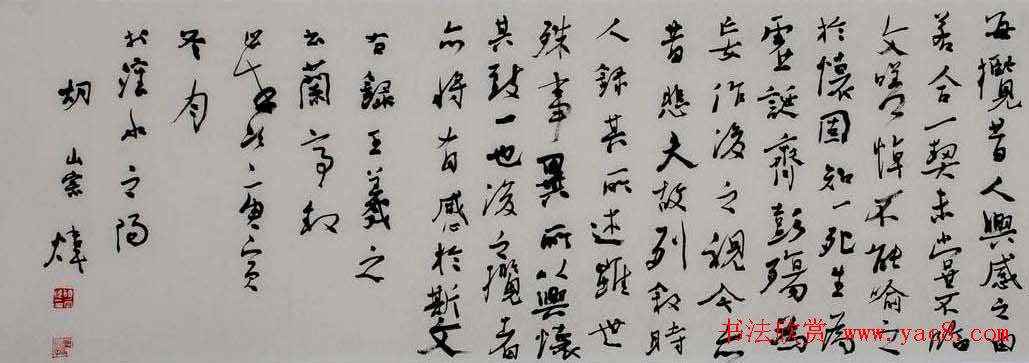 每攬昔人興感之由
若合一契未嘗不臨
文嗟悼不能喻之
於懷固知一死生為
虛誕齊彭殤為
妄作後之視今亦
昔悲夫故列叙時
人錄其所述雖世
殊事異所以興懷
其致一也後之攬者
亦將有感於斯文
右錄王羲之
蘭亭叙
庚寅
冬月
水之陽
胡
山
书法欣赏 www.yac8.com